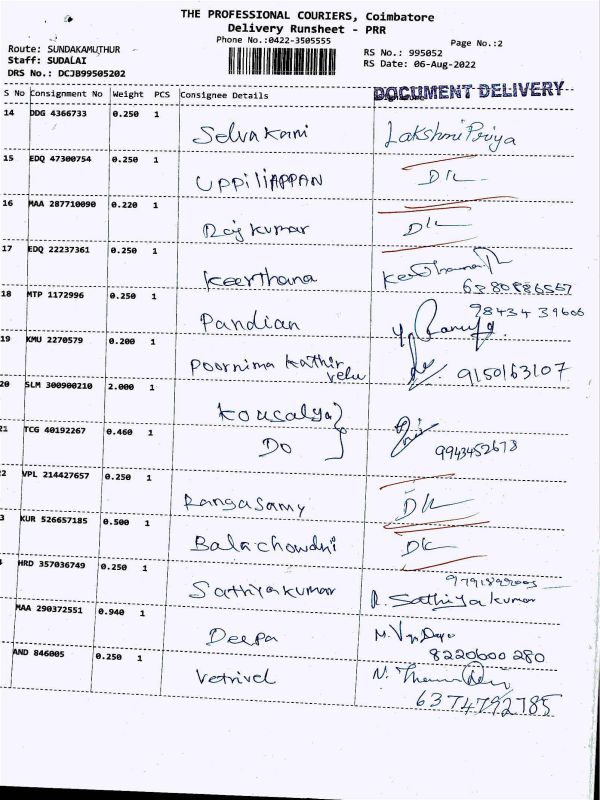 THE PROFESSIONAL COURIERS, Coimbatore
Delivery Runsheet - PRR
Phone No.:0422-3505555
Page No.:2
Route: SUNDAKAMUTHUR
RS No.: 995052
Staff: SUDALAI
RS Date: 06-Aug-2022
DRS No.: DCJB99505202
DOCUMENT DELIVERY
S No Consignment No Weight PCS Consignee Details
14 DDG 4366733 0.250 1
Selvakani LakshmiPriya
15 EDQ 47300754 0.250 1
UPPiliAPPAN D/L
16 MAA 287710090 0.220 1
Rajkumar D/L
17 EDQ 22237361 0.250 1
Keerthana Keerthana
6380886557
18 MTP 1172996 0.250 1
98434 39606
Pandian
19 KMU 2270579 0.200 1
Poornima Kathir
velu 9150163107
20 SLM 300900210 2.000 1
Kousalya
21 TCG 40192267 0.460 1
Do 9943452673
2 VPL 214427657 0.250 1
Rangasamy D/L
3 KUR 526657185 0.500 1
Balachowdri DL
HRD 357036749 0.250 1
Sathiyakumar R. Sathiyakumar
MAA 290372551 0.940 1
Deepa
8220600 280
AND 846005 0.250 1
Vetrivel
6374792785